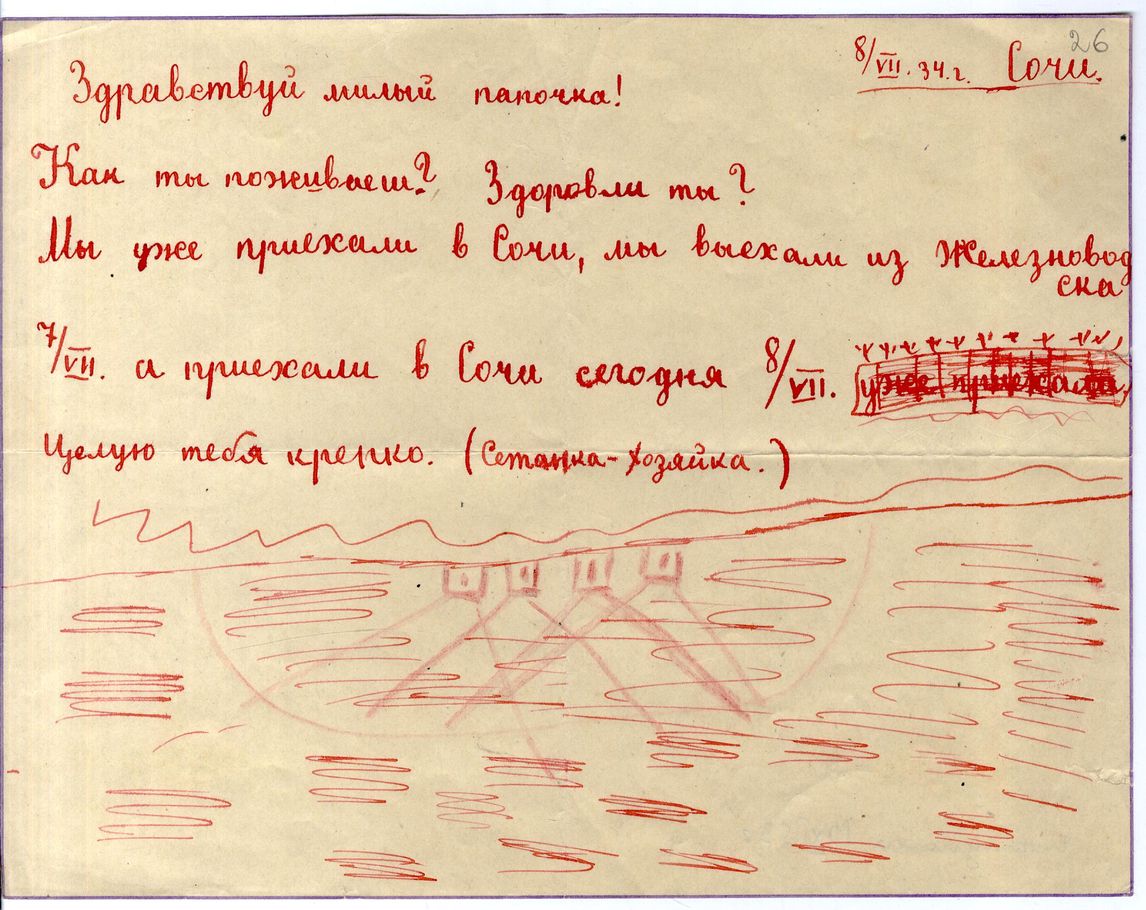 26
8/VII. 34.г. Сочи.
Здравствуй милый папочка!
Как ты поживаеш? Здоровли ты?
Мы уже приехали в Сочи, мы выехали из Железновод
ска
7/VII. а приехали в Сочи сегодня 8/VII. уже приехали,
Целую тебя крепко. (Сетанка-хозяйка.)